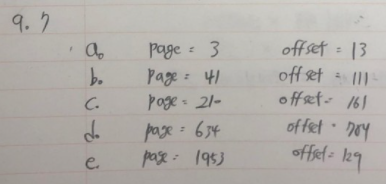 9. 7
a. page = 3 offset = 13
b. Page = 41 offset = 111
c. Page = 210 offset = 161
d. page = 634 offset = 784
e. page = 1953 offset = 129